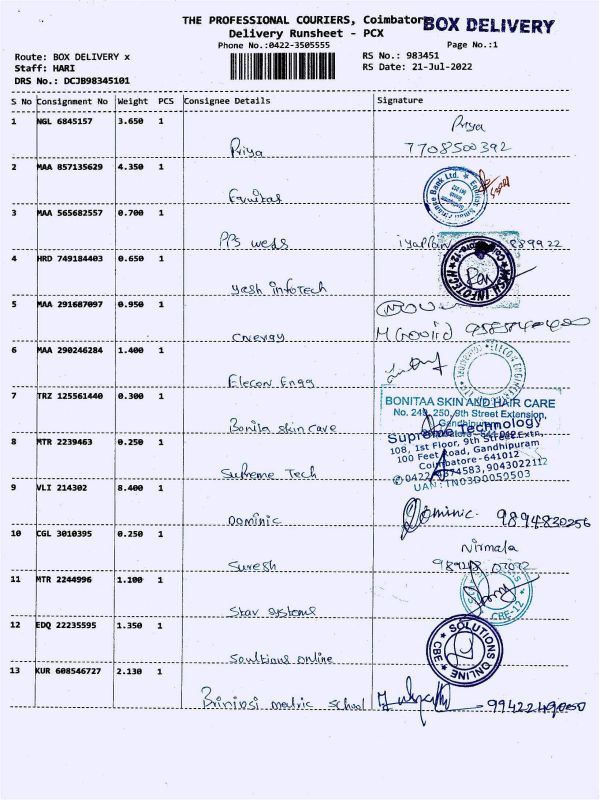 THE PROFESSIONAL COURIERS, Coimbator
BOX DELIVERY
Delivery Runsheet - PCX
Phone No.:0422-3505555
Page No.:1
Route: BOX DELIVERY x
RS No.: 983451
Staff: HARI
RS Date: 21-Jul-2022
DRS No.: DCJB98345101
S No Consignment No Weight PCS Consignee Details Signature
1 NGL 6845157 3.650 1
Priya
Priya 7708500392
2 MAA 857135629 4.350 1
Bank Ltd.
3 MAA 565682557 0.700 1
PPs weds
4 HRD 749184403 0.650 1
yesh infotech
YESH INFOTECH
5 MAA 291687097 0.950 1
energy
6 MAA 290246284 1.400 1
Elecon Engg
7 TRZ 125561440 0.300 1
BONITAA SKIN AND HAIR CARE
No. 249, 250, 9th Street Extension,
Bonita skin care
Supreme Technology
8 MTR 2239463 0.250 1
108, 1st Floor, 9th Street Extn,
100 Feet Road, Gandhipuram
Coimbatore - 641012
Supreme Tech
9043022112
9 VLI 214302 8.400 1
Dominic
Dominic. 9894830256
10 CGL 3010395 0.250 1
Nirmala
Suresh
11 MTR 2244996 1.100 1
CBE-12
Star systems
12 EDQ 22235595 1.350 1
SOLUTIONS ONLINE
CBE
Soultions online
13 KUR 608546727 2.130 1
matric school